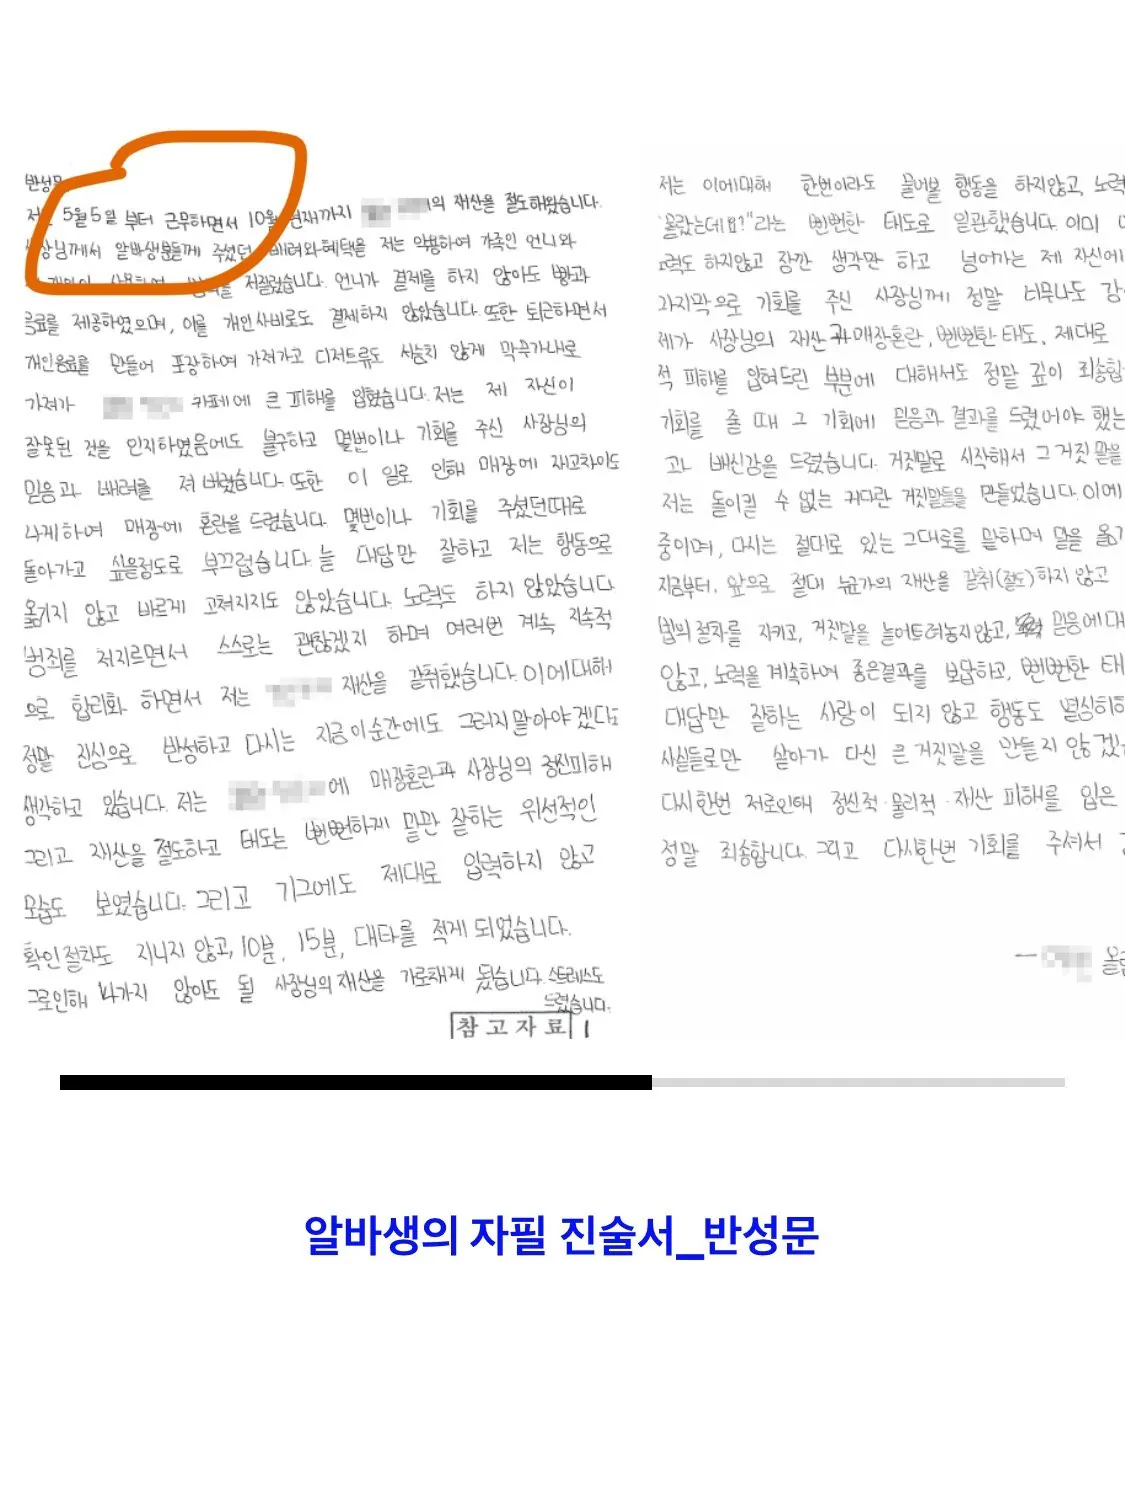 반성문
저는 5월5일 부터 근무하면서 10월 현재까지 의 재산을 절도해왔습니다.
사장님께서 알바생분들께 주셨던 배려와 혜택을 저는 악용하여 가족인 언니와
사용하여 범죄를 저질렀습니다. 언니가 결제를 하지 않아도 빵과
음료를 제공하였으며, 이를 개인사비로도 결제하지 않았습니다. 또한 퇴근하면서
개인음료를 만들어 포장하여 가져가고 디저트류도 서슴치 않게 막무가내로
가져가 카페에 큰 피해를 입혔습니다. 저는 제 자신이
잘못된 것을 인지하였음에도 불구하고 몇번이나 기회를 주신 사장님의
믿음과 배려를 져 버렸습니다. 또한 이 일로 인해 매장에 재고차이도
나게하여 매장에 혼란을 드렸습니다. 몇번이나 기회를 주셨던때로
돌아가고 싶을정도로 부끄럽습니다. 늘 대답만 잘하고 저는 행동으로
옮기지 않고 바르게 고쳐지지도 않았습니다. 노력도 하지 않았습니다
범죄를 저지르면서 스스로는 괜찮겠지 하며 여러번 계속 지속적
으로 합리화 하면서 저는 재산을 갈취했습니다. 이에대해
정말 진심으로 반성하고 다시는 지금이순간에도 그러지말아야겠다고
생각하고 있습니다. 저는 에 매장혼란과 사장님의 정신피해
그리고 재산을 절도하고 태도는 뻔뻔하게 말만 잘하는 위선적인
모습도 보였습니다. 그리고 기그에도 제대로 입력하지 않고
확인절차도 지니지 않고, 10분, 15분, 대타를 적게 되었습니다.
그로인해 나가지 않아도 될 사장님의 재산을 가로채게 됬습니다. 스트레스도
드렸습니다.
참고자료 1
저는 이에대해 한번이라도 물어볼 행동을 하지않고 노력
"몰랐는데요?"라는 뻔뻔한 태도로 일관했습니다. 이미
노력도 하지않고 잠깐 생각만 하고 넘어가는 제 자신에
마지막으로 기회를 주신 사장님께 정말 너무나도
제가 사장님의 재산과 매장혼란, 뻔뻔한 태도, 제대로
적 피해를 입혀드린 부분에 대해서도 정말 깊이 죄송합
기회를 줄 때 그 기회에 믿음과 결과를 드렸어야 했는
고 배신감을 드렸습니다. 거짓말로 시작해서 그 거짓말을
저는 돌이킬 수 없는 커다란 거짓말들을 만들었습니다. 이에
중이며, 다시는 절대로 있는 그대로를 말하며 말을
지금부터, 앞으로 절대 누군가의 재산을 갈취(절도)하지 않고
법의 절차를 지키고, 거짓말을 늘어트려놓지않고, 믿음에
않고, 노력을 계속하여 좋은결과를 보답하고, 뻔뻔한
대답만 잘하는 사람이 되지 않고 행동도 열심히
사실들로만 살아가 다신 큰 거짓말을 만들지 않겠
다시한번 저로인해 정신적·물리적·재산 피해를 입은
정말 죄송합니다. 그리고 다시한번 기회를 주셔서
알바생의 자필 진술서_반성문